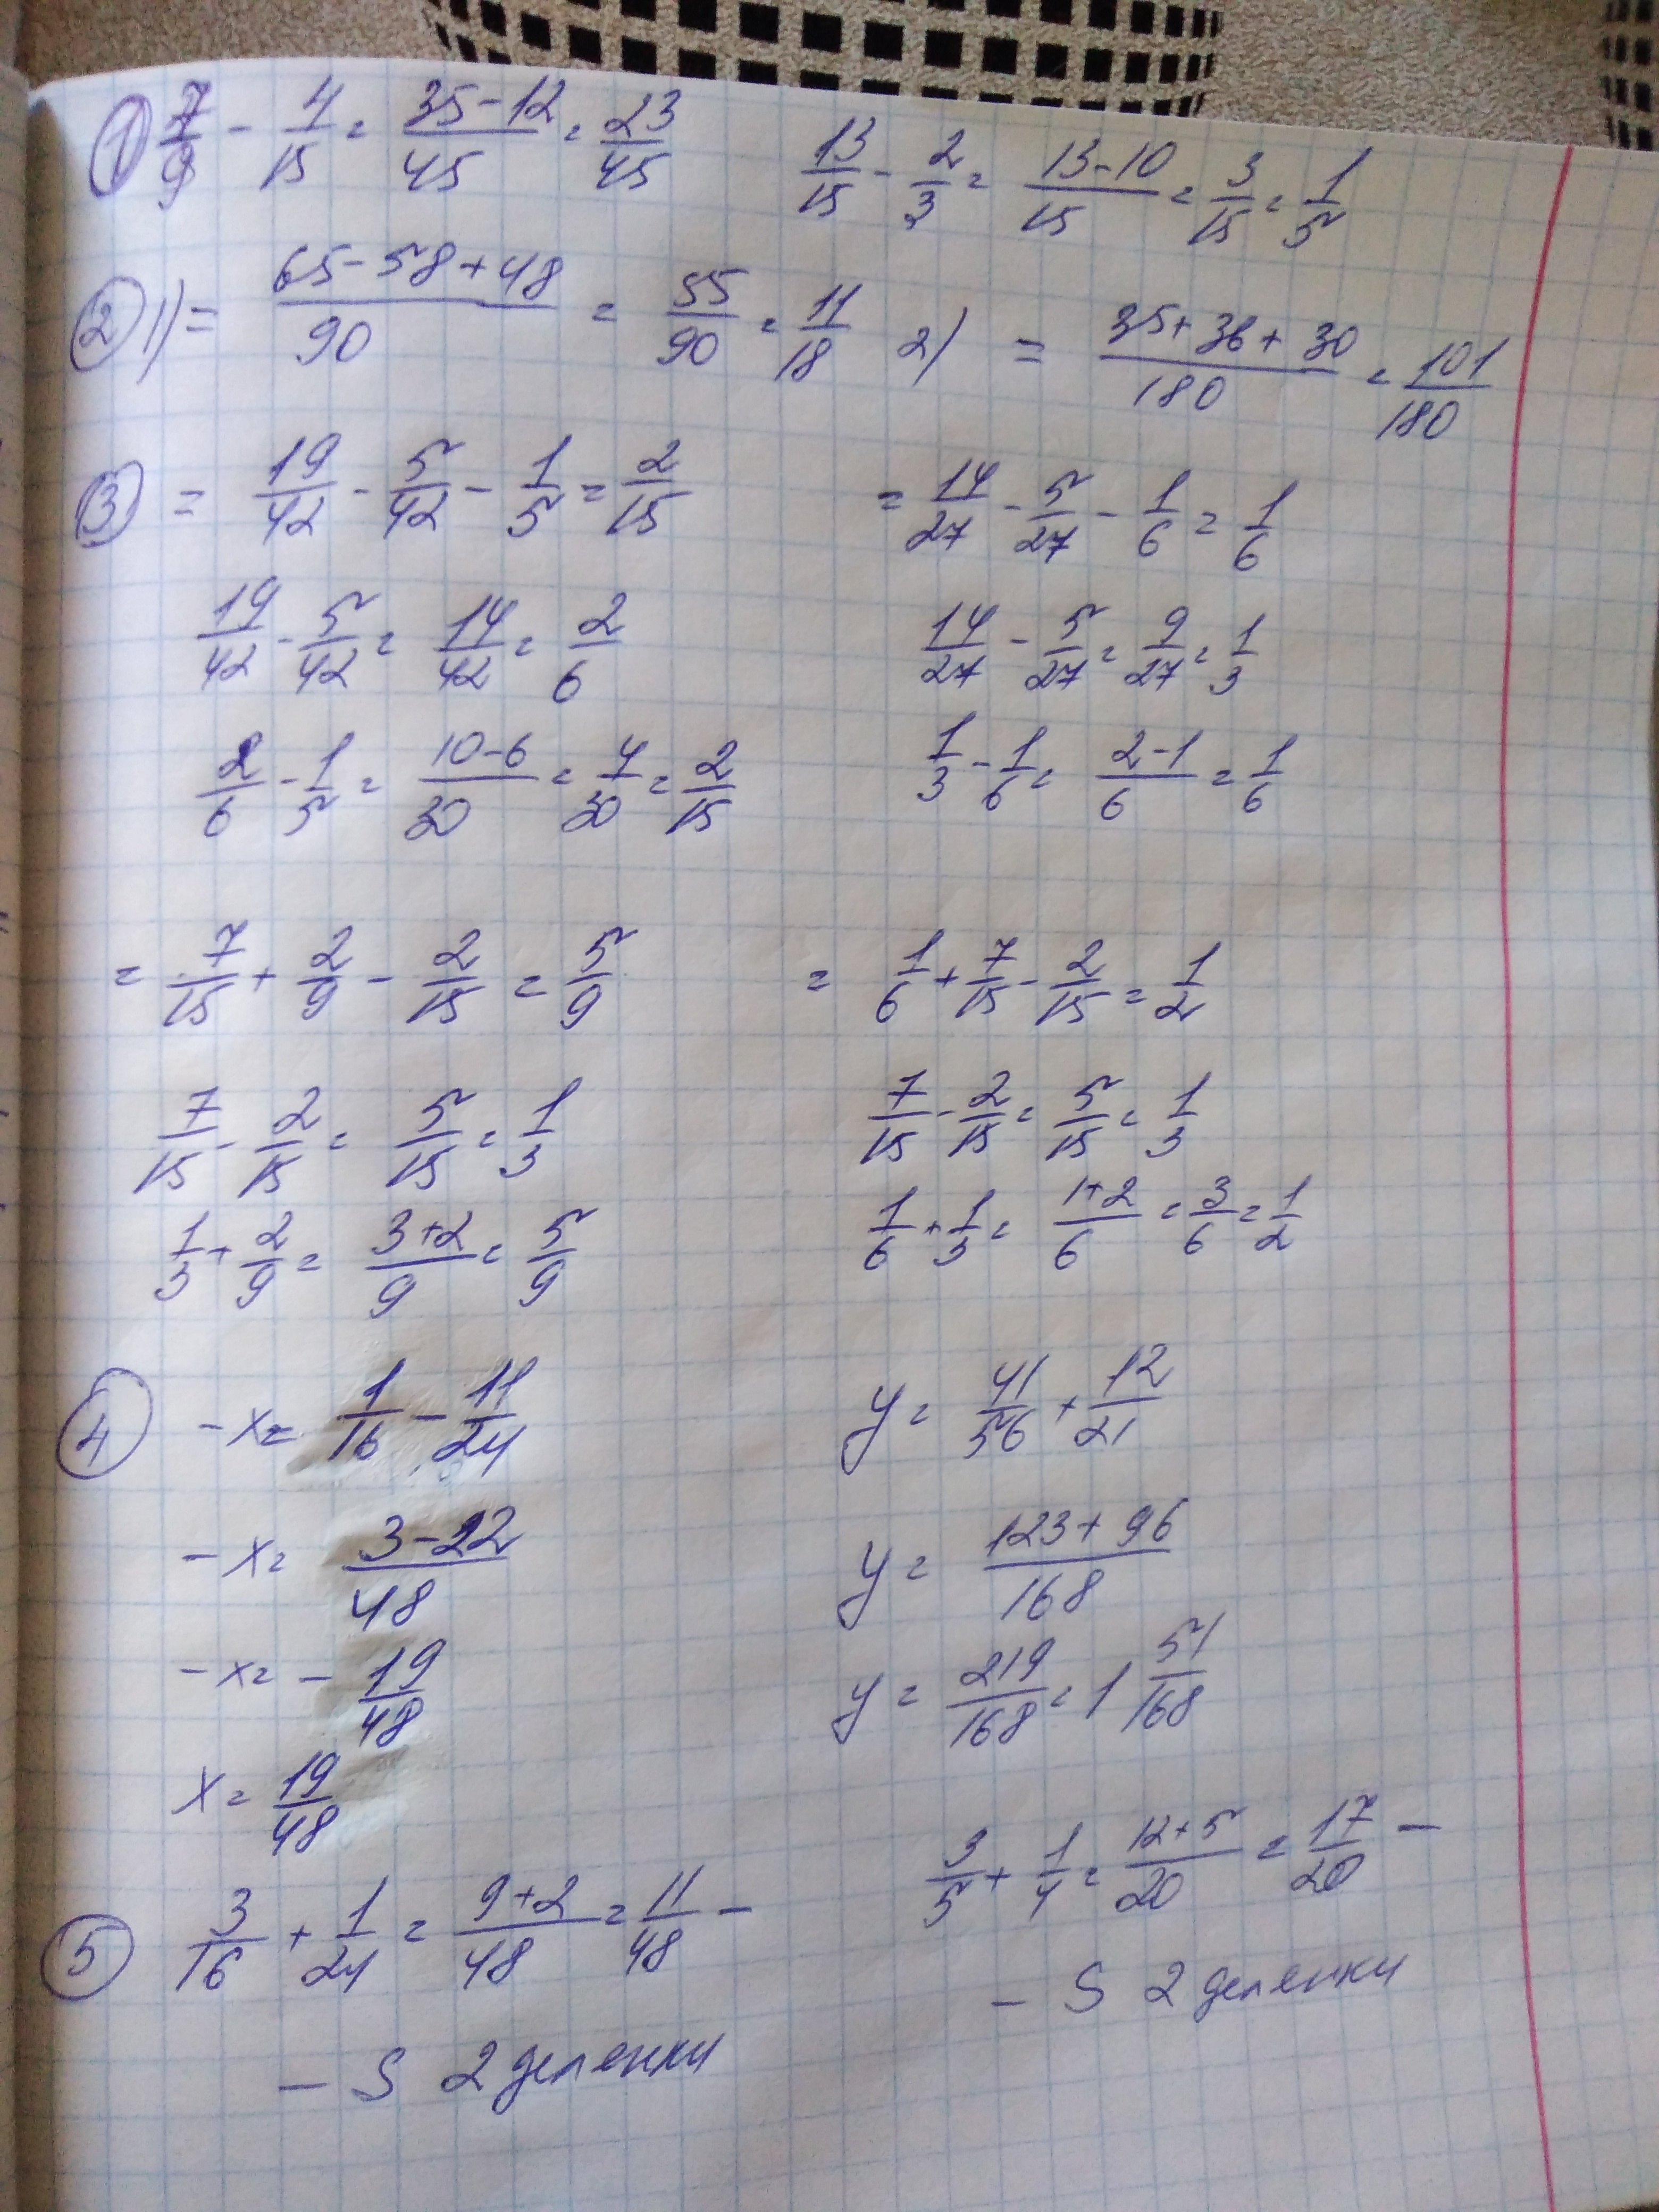 ① 7/9 - 4/15 = (35-12)/45 = 23/45   13/15 - 2/3 = (13-10)/15 = 3/15 = 1/5
② 1) = (65-58+48)/90 = 55/90 = 11/18   2) = (35+36+30)/180 = 101/180
③ = 19/42 - 5/42 - 1/5 = 2/15   = 14/27 - 5/27 - 1/6 = 1/6
19/42 - 5/42 = 14/42 = 2/6   14/27 - 5/27 = 9/27 = 1/3
2/6 - 1/5 = (10-6)/30 = 4/30 = 2/15   1/3 - 1/6 = (2-1)/6 = 1/6
= 7/15 + 2/9 - 2/15 = 5/9   = 1/6 + 7/15 - 2/15 = 1/2
7/15 - 2/15 = 5/15 = 1/3   7/15 - 2/15 = 5/15 = 1/3
1/3 + 2/9 = (3+2)/9 = 5/9   1/6 + 1/3 = (1+2)/6 = 3/6 = 1/2
④ -x = 1/16 - 11/24   y = 41/56 + 12/21
-x = (3-22)/48   y = (123+96)/168
-x = - 19/48   y = 219/168 = 1 51/168
x = 19/48
⑤ 3/16 + 1/24 = (9+2)/48 = 11/48 -   3/5 + 1/4 = (12+5)/20 = 17/20 -
- S 2 деленки   - S 2 деленки